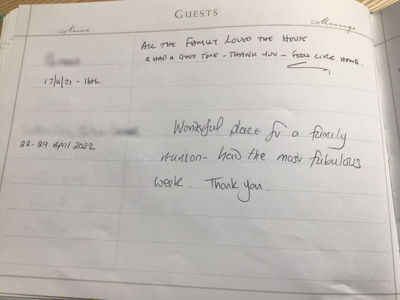 GUESTS
Name
Message
ALL THE FAMILY LOVED THE HOUSE
& HAD A GOOD TIME - THANK YOU - FEELS LIKE HOME.
22-29 April 2022
Wonderful place for a family
reunion - had the most fabulous
week. Thank you.